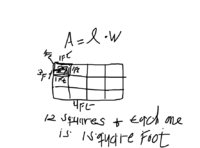 A = l · w
1Ft
3Ft
1Ft
4Ft
12 squares & Each one
is 1 square Foot